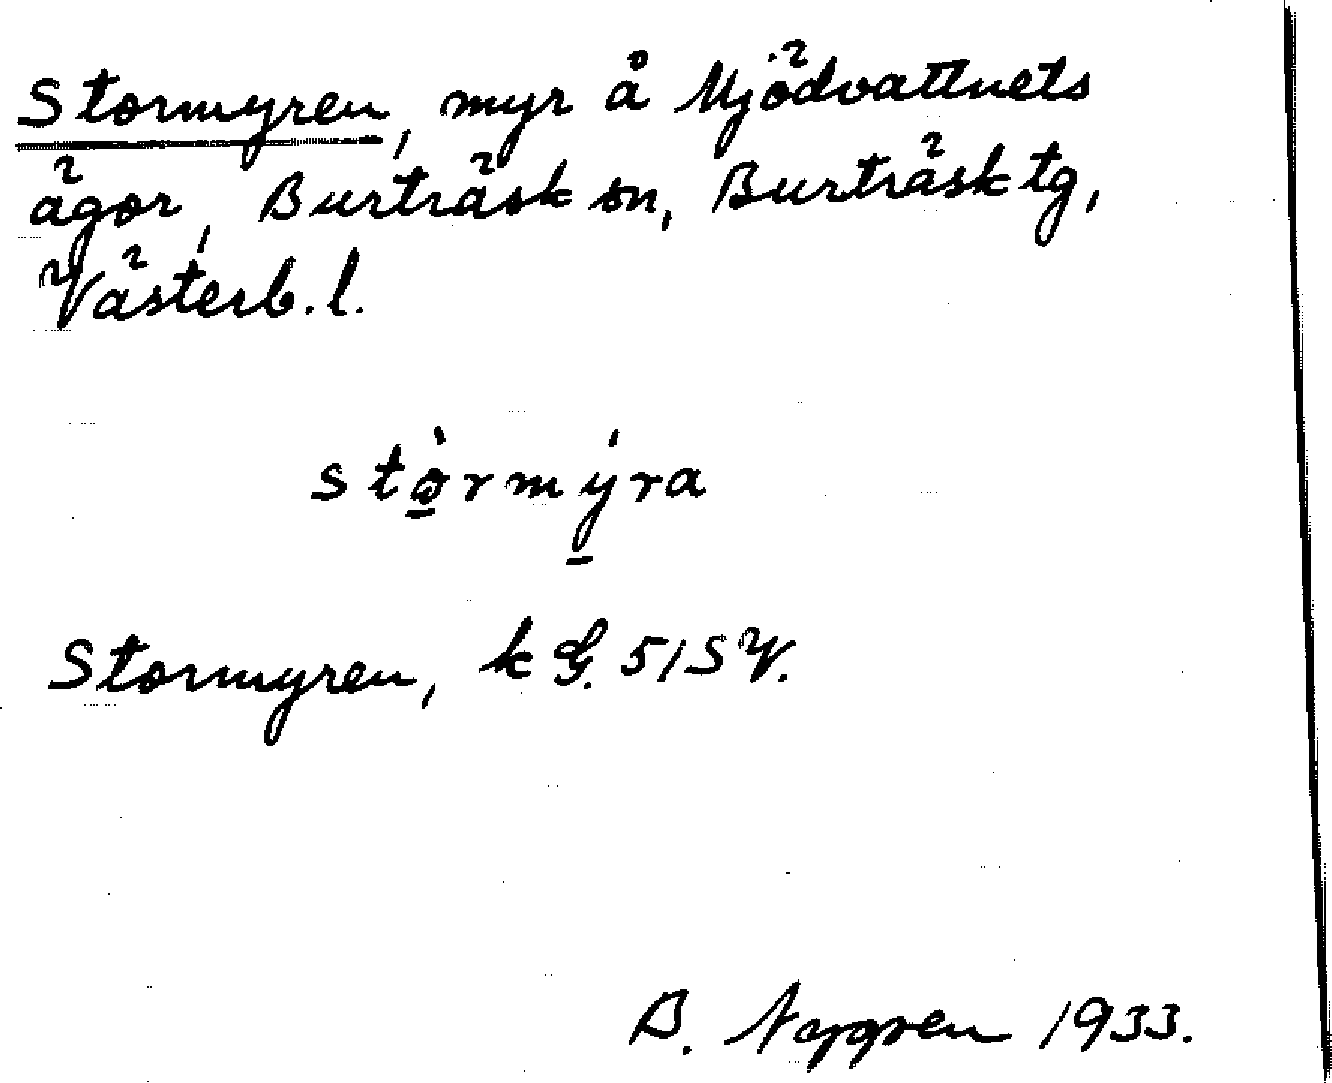 Stormyren, myr å Mjödvattnets
ägor, Burträsk sn, Burträsk tg,
Västerb. l.
stòrmýra
Stormyren, k G. 51 SV.
B. Nygren 1933.